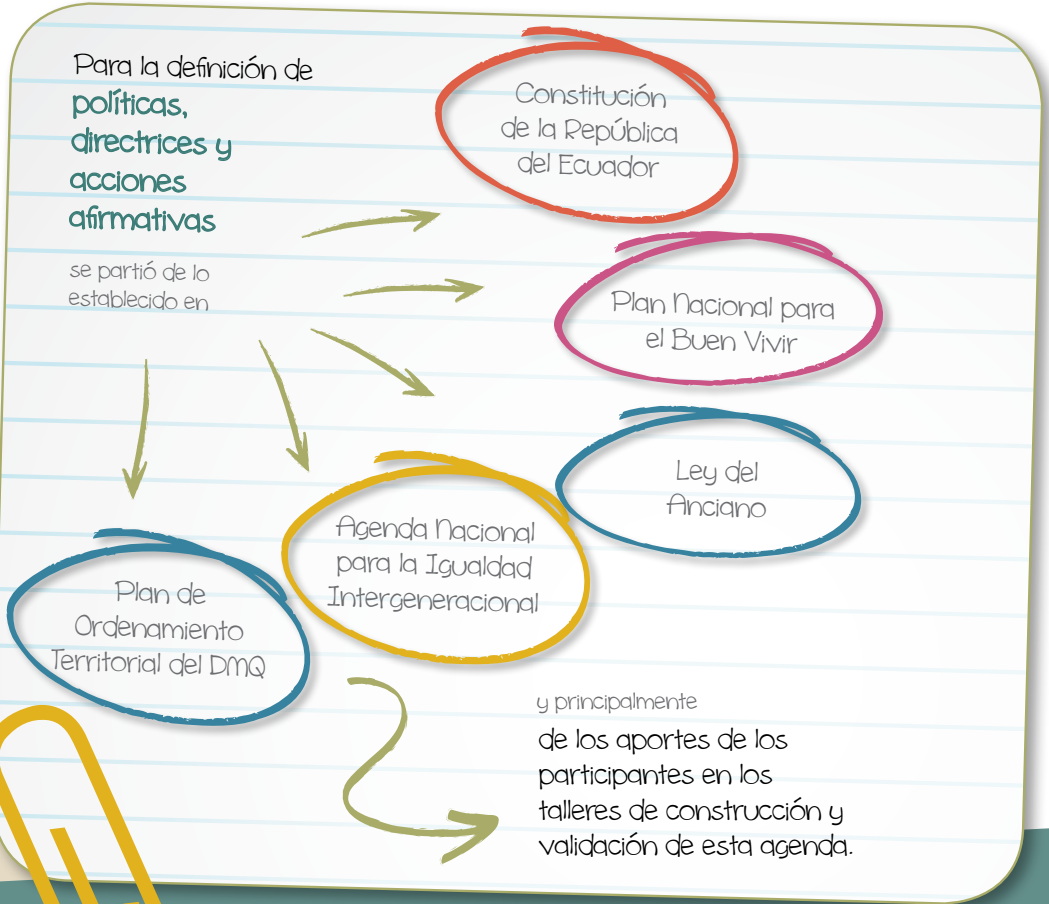 Para la definición de
políticas,
directrices y
acciones
afirmativas
se partió de lo
establecido en
Constitución
de la República
del Ecuador
Plan Nacional para
el Buen Vivir
Ley del
Anciano
Agenda Nacional
para la Igualdad
Intergeneracional
Plan de
Ordenamiento
Territorial del DMQ
y principalmente
de los aportes de los
participantes en los
talleres de construcción y
validación de esta agenda.